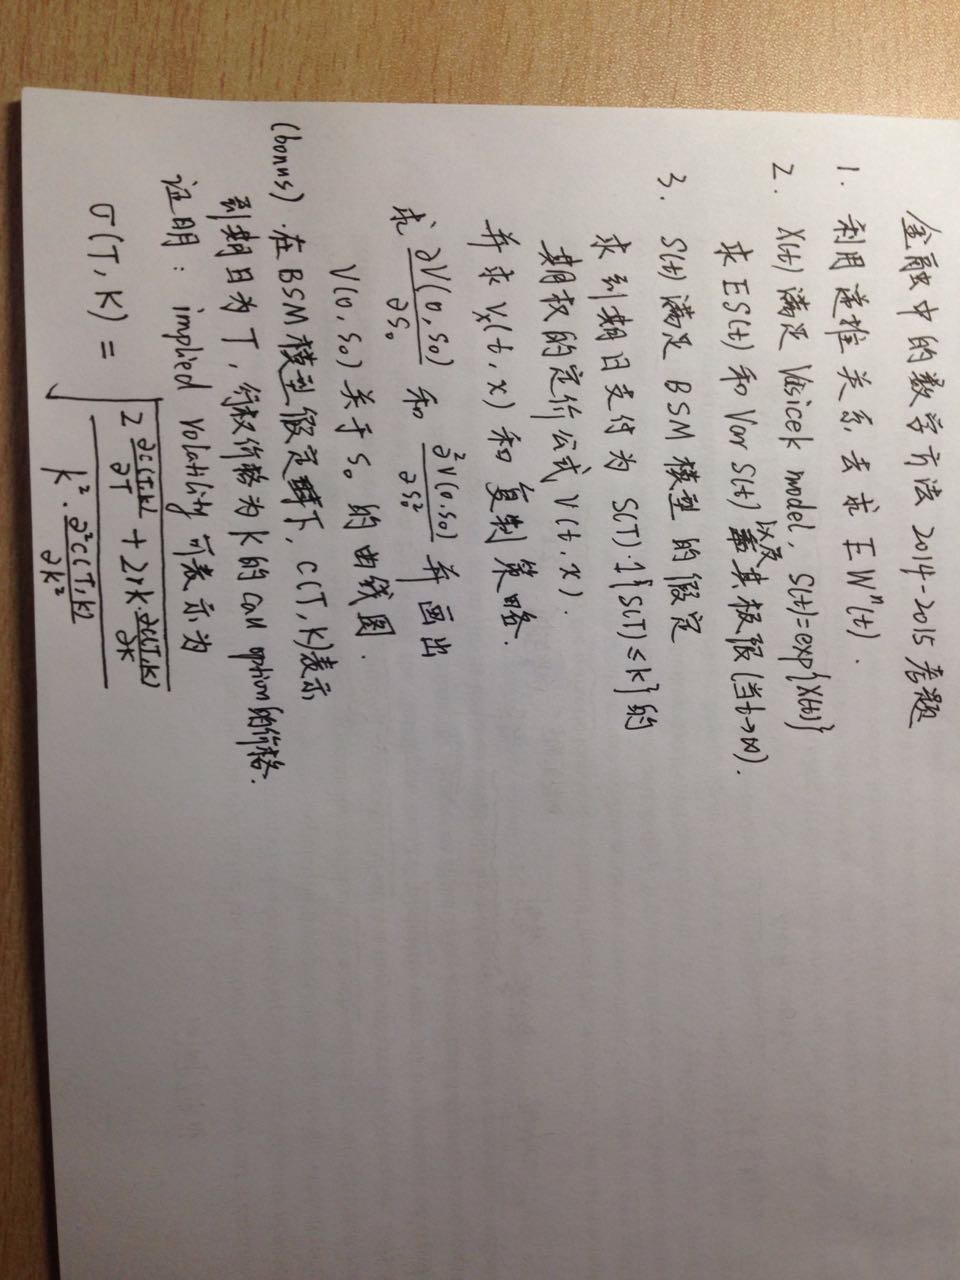 金融中的数学方法 2014-2015 考题
1. 利用递推关系去求 EWⁿ(t).
2. X(t) 满足 Vasicek model, S(t)=exp{X(t)}
求 ES(t) 和 Var S(t) 以及其极限(当t→∞).
3. S(t) 满足 BSM 模型的假定
求到期日支付为 S(T)·1{S(T)≤K}的
期权的定价公式 V(t,x).
并求 Vₓ(t,x) 和复制策略.
求 ∂V(0,S₀)/∂S₀ 和 ∂²V(0,S₀)/∂S₀² 并画出
V(0,S₀) 关于 S₀ 的曲线图.
(bonus). 在BSM模型假定下, C(T,K)表示
到期日为T, 行权价格为K的 call option的价格.
证明: implied volatility 可表示为
σ(T,K) = √((2 ∂C(T,K)/∂T + 2rK·∂C(T,K)/∂K)/(K²·∂²C(T,K)/∂K²))